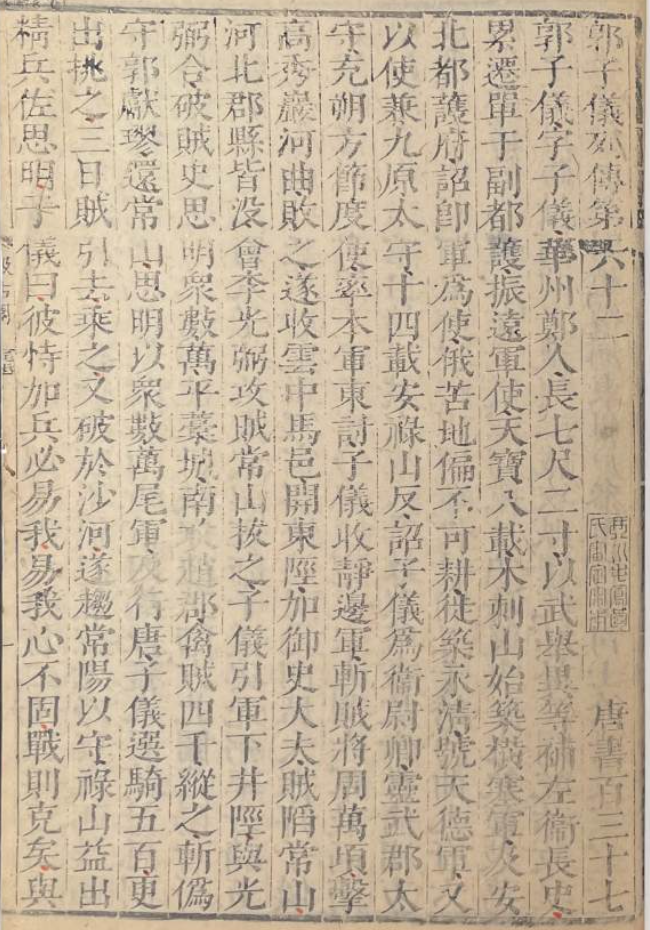 郭子儀列傳第六十二 唐書百三十七
郭子儀字子儀華州鄭人長七尺二寸以武舉異等補左衞長史
累遷單于副都護振遠軍使天寶八載木剌山始築橫塞軍及安
北都護府詔卽軍爲使俄苦地偏不可耕徙築永清號天德軍又
以使兼九原太守十四載安祿山反詔子儀爲衞尉卿靈武郡太
守充朔方節度使率本軍東討子儀收靜邊軍斬賊將周萬頃擊
高秀巖河曲敗之遂收雲中馬邑開東陘加御史大夫賊陷常山
河北郡縣皆没會李光弼攻賊常山拔之子儀引軍下井陘與光
弼合破賊史思明衆數萬平藁城南攻趙郡禽賊四千縱之斬僞
守郭獻璆還常山思明以衆數萬尾軍及行唐子儀選騎五百更
出挑之三日賊引去乘之又破於沙河遂趨常陽以守祿山益出
精兵佐思明子儀曰彼恃加兵必易我易我心不固戰則克矣與